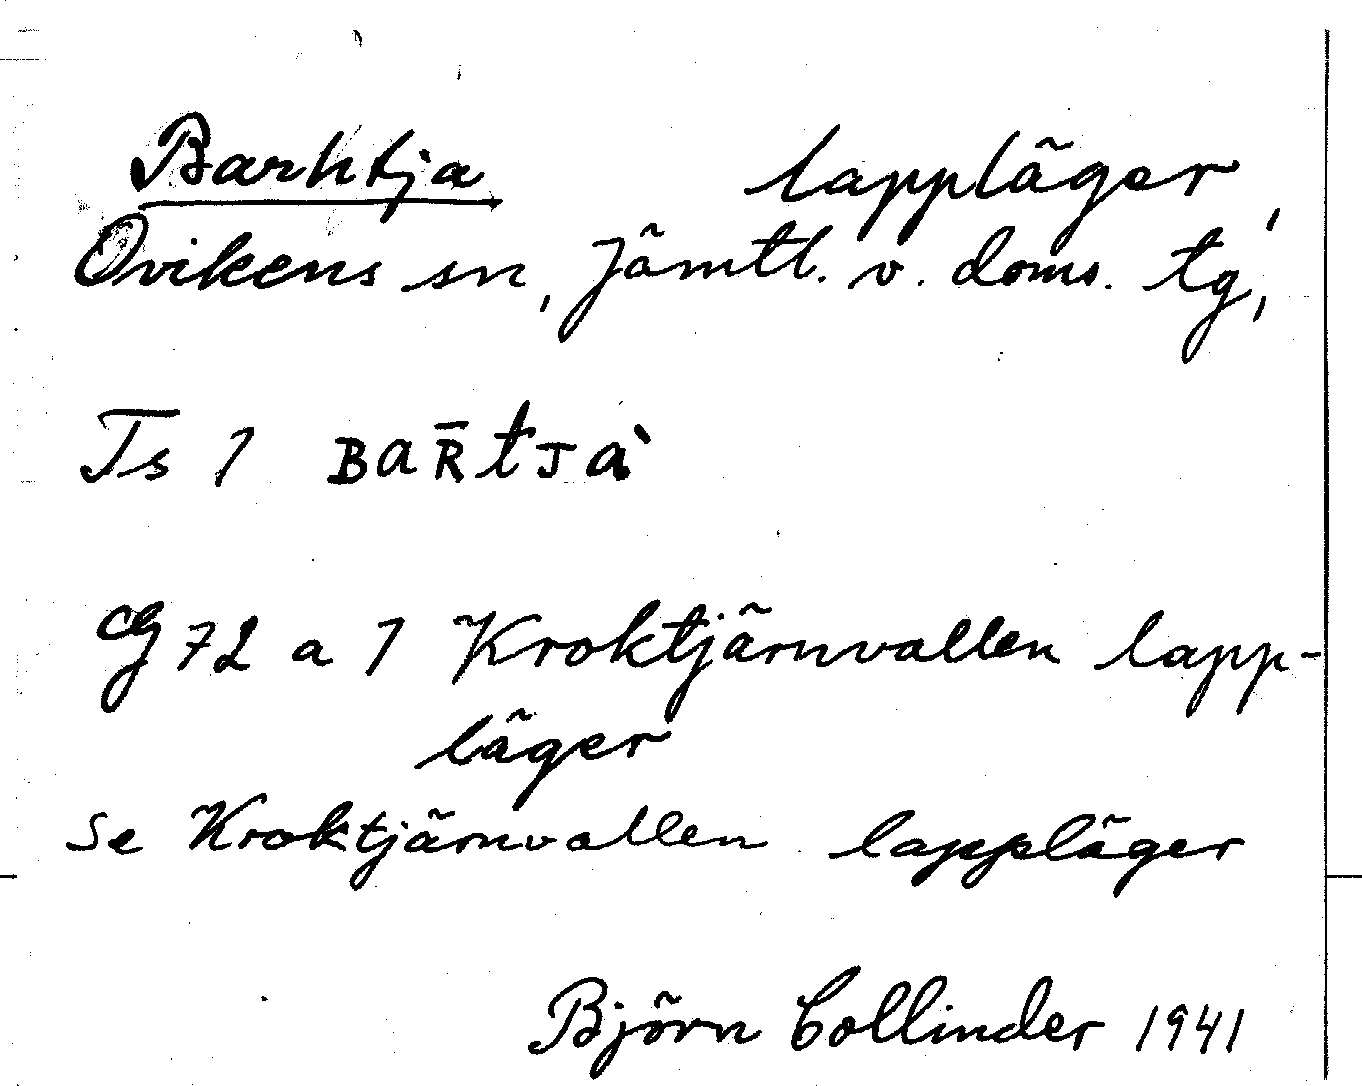 Barhtja lappläger,
Ovikens sn, Jämtl. v. doms. tg,
Ts 1 BaR̄tJà
Cg 72 a 1 Kroktjärnvallen lapp-
läger
Se Kroktjärnvallen lappläger
Björn Collinder 1941